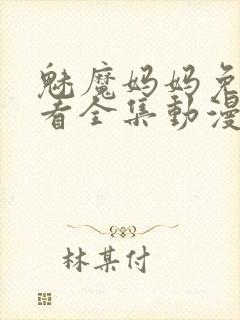 魅魔妈妈免
者全集動漫
林某付